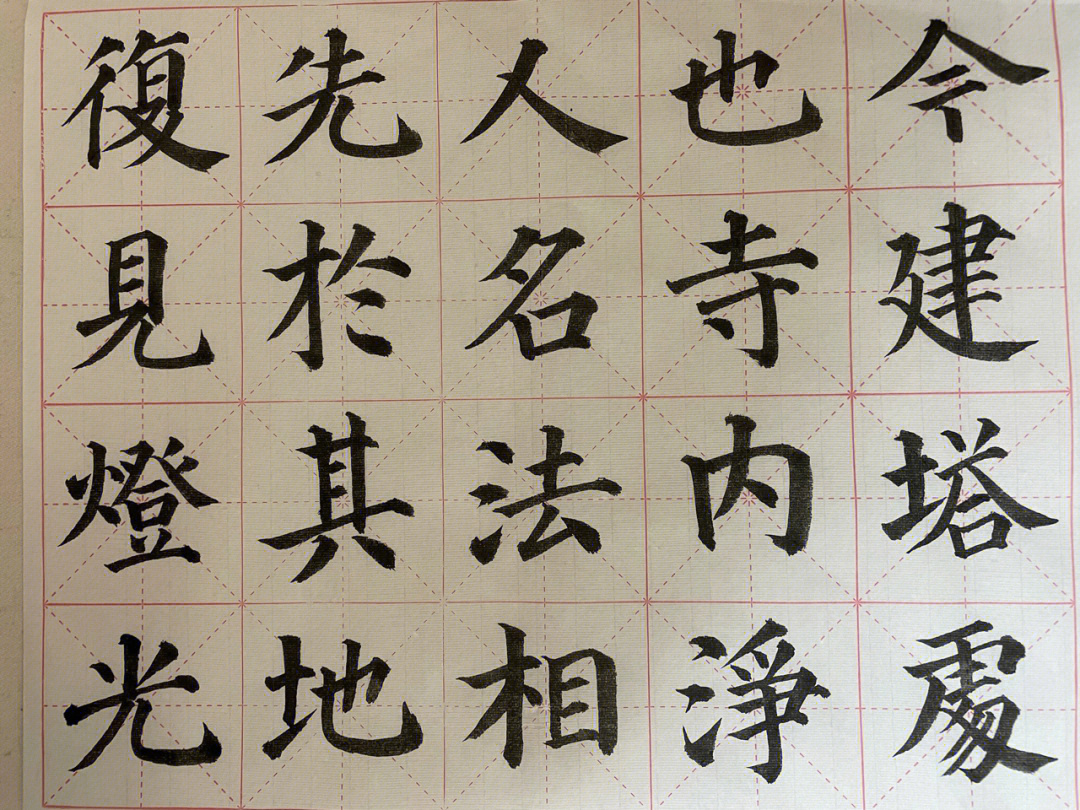 今建塔處
也寺内淨
人名法相
先於其地
復見燈光